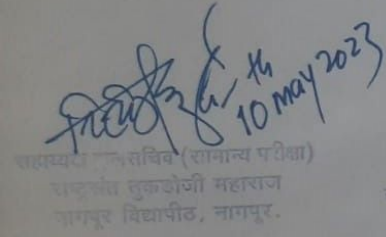 10th may 2023
सहाय्यक कुलसचिव (सामान्य परीक्षा)
राष्ट्रसंत तुकडोजी महाराज
नागपूर विद्यापीठ, नागपूर.